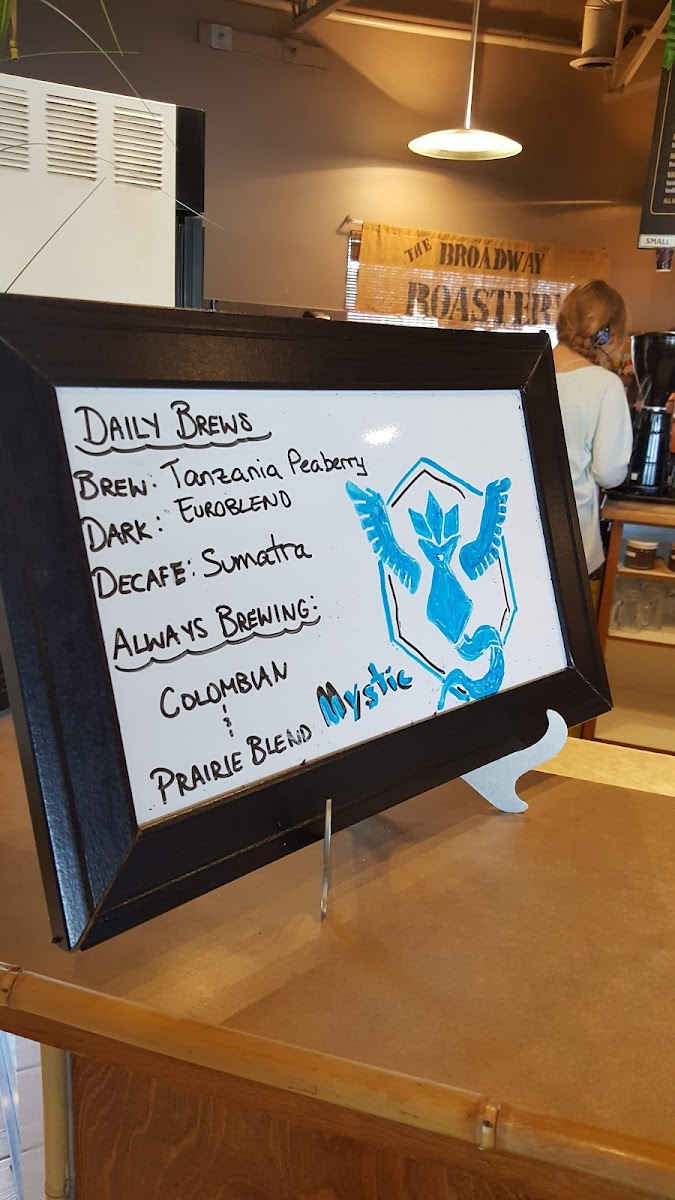 THE BROADWAY
ROASTERY
SMALL
DAILY BREWS
BREW: Tanzania Peaberry
DARK: EUROBLEND
DECAFE: Sumatra
ALWAYS BREWING:
COLOMBIAN
&
PRAIRIE BLEND
Mystic